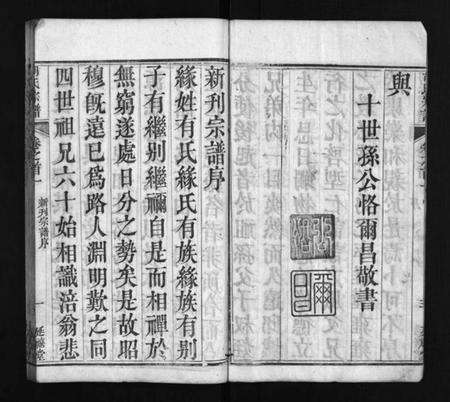 與
十世孫公恪爾昌敬書
公恪
爾昌
新刊宗譜序
緣姓有氏緣氏有族緣族有別
子有繼別繼禰自是而相禪於
無窮遂處日分之勢矣是故昭
穆既遠已為路人淵明歎之同
四世祖兄六十始相識涪翁悲
氏宗譜
卷之首
新刊宗譜序
一